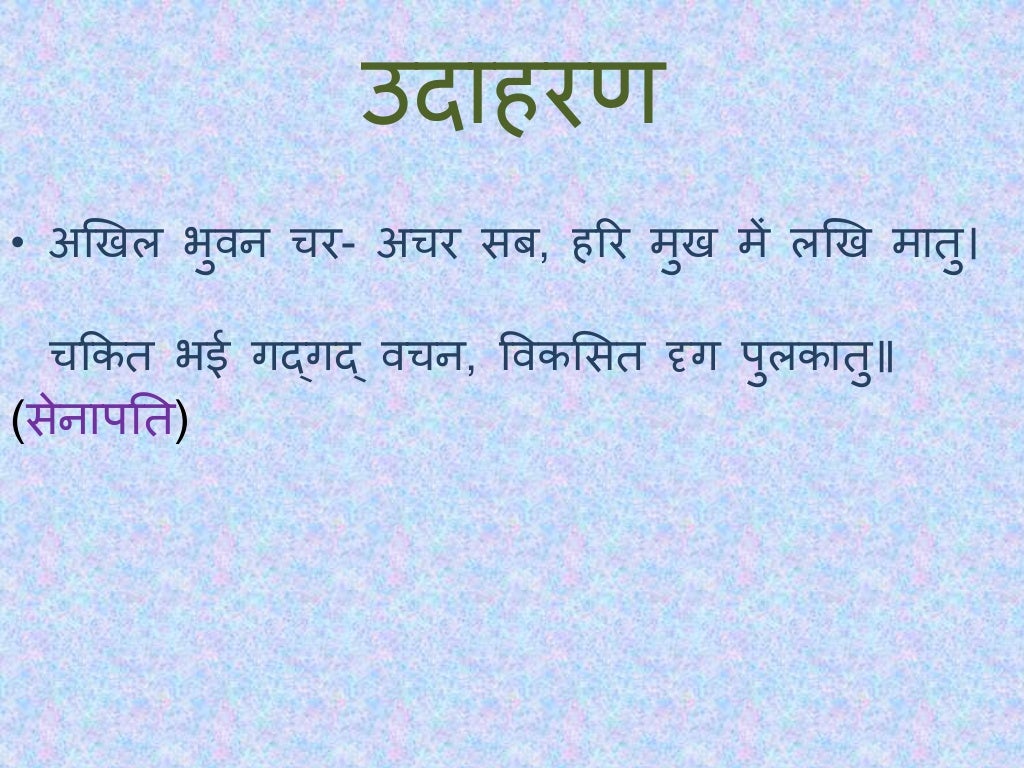 उदाहरण
• अखिल भुवन चर- अचर सब, हरि मुख में लखि मातु।
चकित भई गद्‌गद्‌ वचन, विकसित दृग पुलकातु॥
(सेनापति)